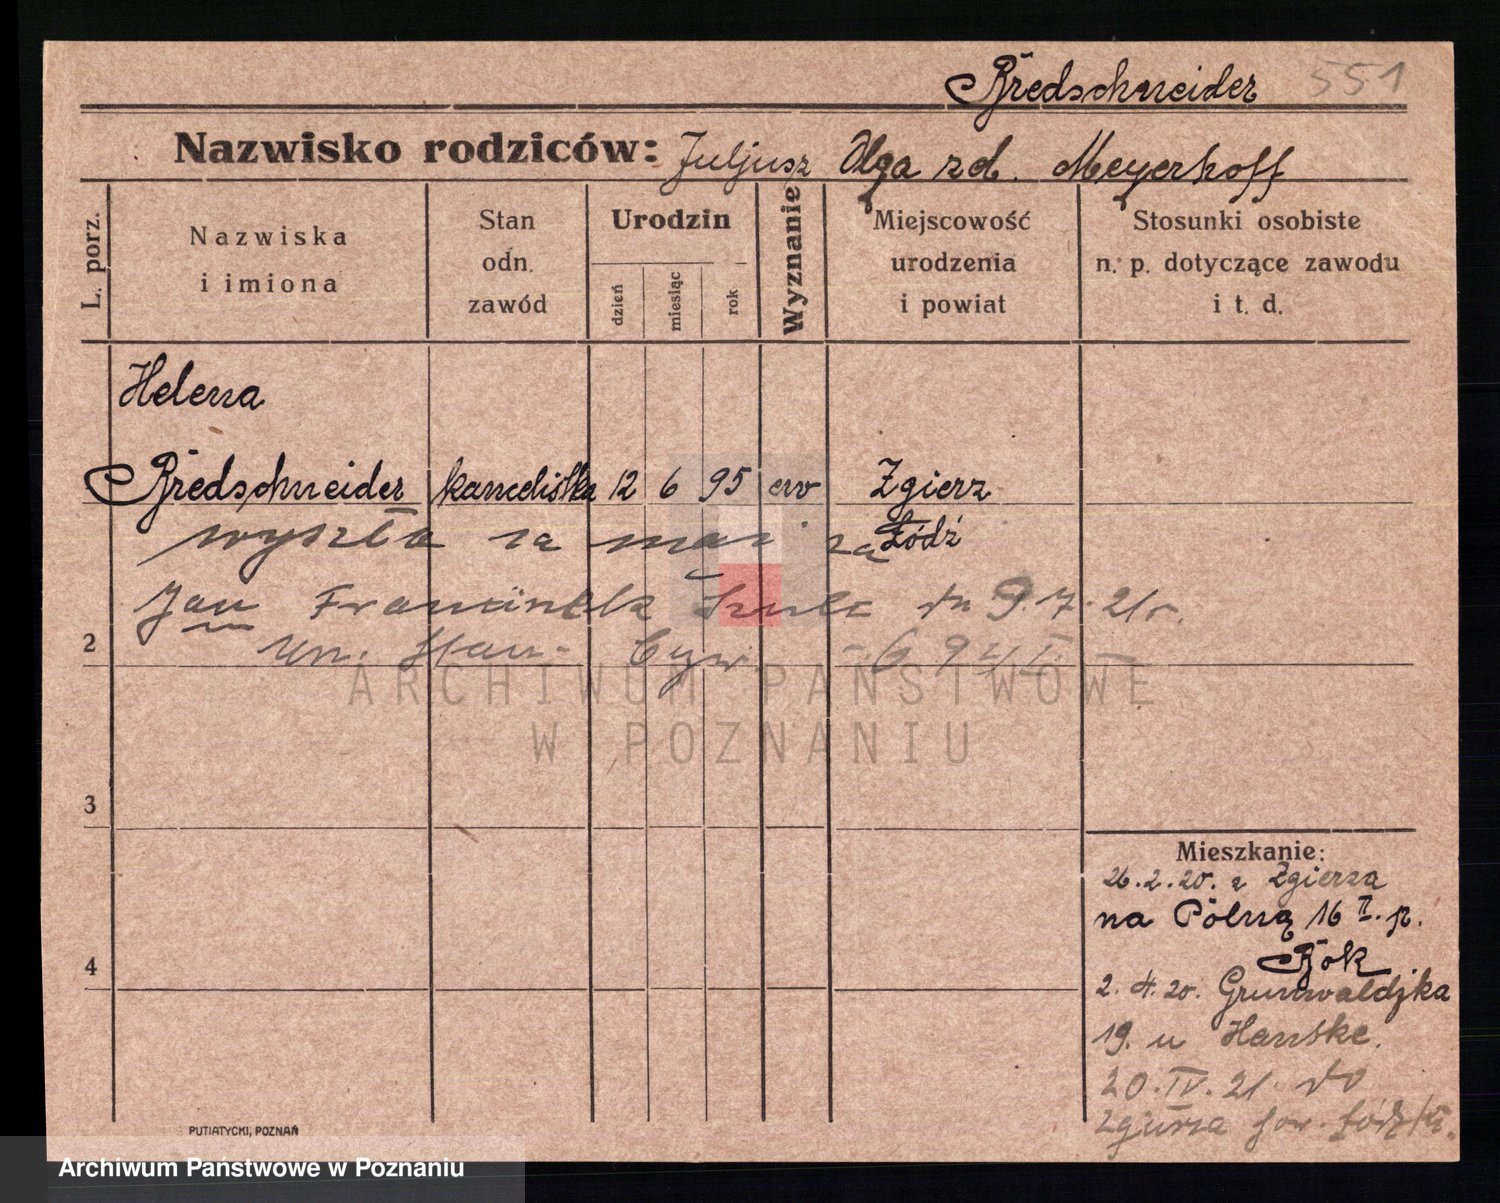 Bredschneider 551
Nazwisko rodziców: Juljusz Olga zd. Meyerhoff
L. porz.
Nazwiska
i imiona
Stan
odn.
zawód
Urodzin
dzień
miesiąc
rok
Wyznanie
Miejscowość
urodzenia
i powiat
Stosunki osobiste
n. p. dotyczące zawodu
i t. d.
Helena
Bredschneider kancelistka 12 6 95 ew Zgierz
Łódź
wyszła za mąż za
Jan Franciszek Szulc dn 9.7.21r.
2
Urz. Stan. Cyw.
3
4
Mieszkanie:
26.2.20. z Zgierza
na Polną 16 II. p.
Bok
2.4.20. Grunwaldzka
19. u Hanske.
20.IV.21. do
Zgierza pow. Łódzki.
PUTIATYCKI, POZNAŃ
ARCHIWUM PAŃSTWOWE
W POZNANIU
Archiwum Państwowe w Poznaniu